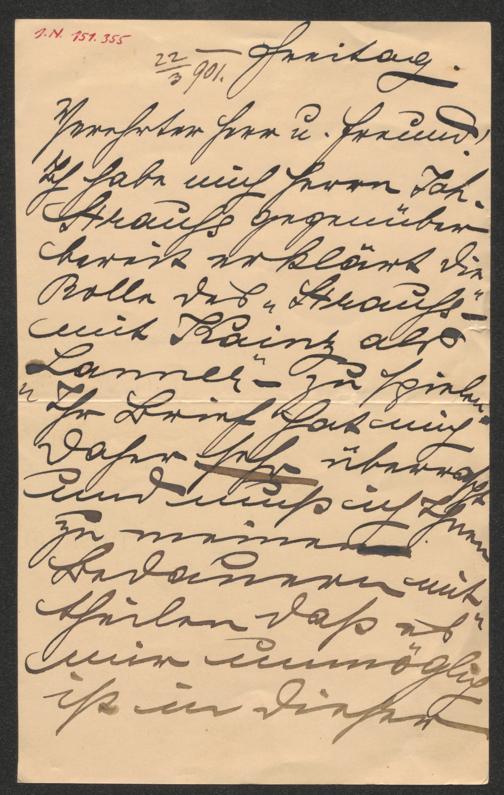 J.N. 151.355
22/3 901. – Freitag.
Verehrter Herr u. Freund!
Ich habe mich Herrn Joh.
Strauss gegenüber
bereit erklärt die
Rolle des „Strauss"–
mit Kainz als
Lanner" – zu spielen
„Ihr Brief hat mich
daher sehr überrascht
und muß ich Ihnen
zu meinem
Bedauern mit"
theilen daß es
mir unmöglich
ist in dieser